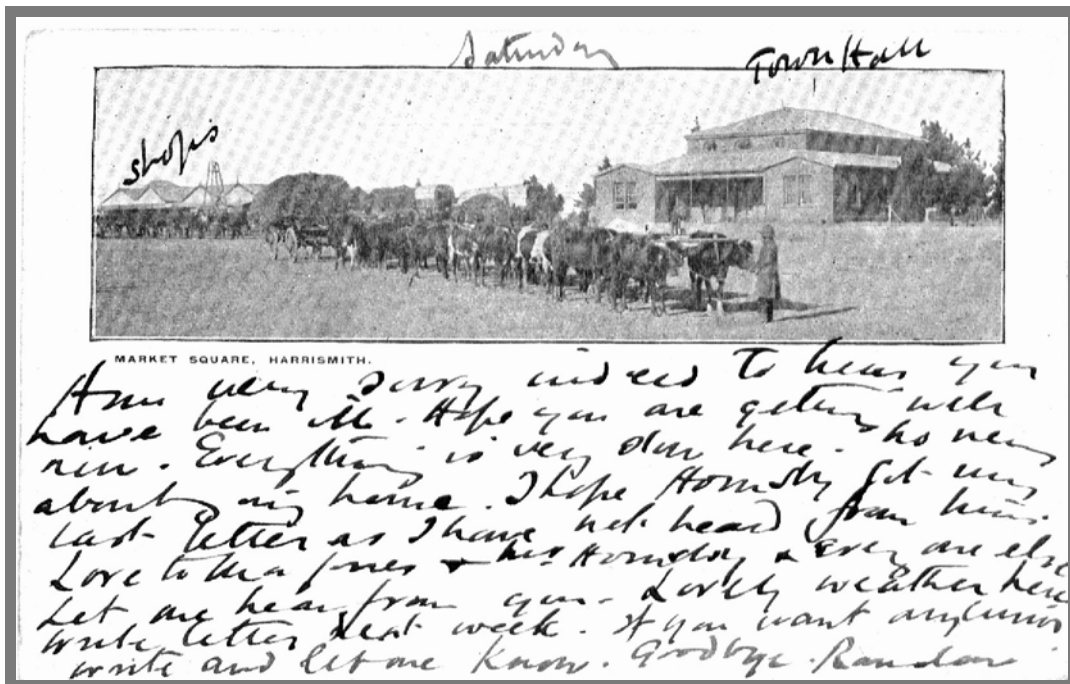 Saturday
Town Hall
shops
MARKET SQUARE, HARRISMITH.
Am very sorry indeed to hear you
have been ill. Hope you are getting well
now. Everything is very slow here. no news
about my home. I hope Hornsby got my
last letter as I have not heard from him.
Love to & Mrs Hornsby & every one else
Let me hear from you. Lovely weather here
write letter next week. If you want anything
write and let me know. Goodbye.